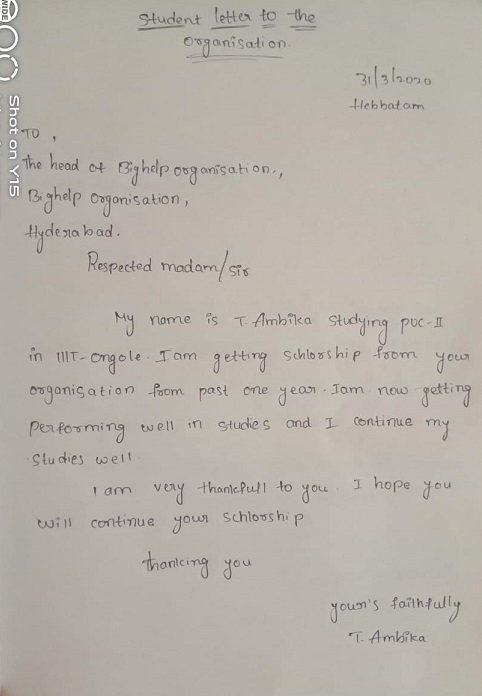 Student letter to the
organisation.
31/3/2020
Hebbatam
TO,
The head of Bighelp organisation.,
Bighelp organisation,
Hyderabad.
Respected madam/sir
My name is T. Ambika studying PUC-II
in IIIT-ongole. I am getting schlorship from your
organisation from past one year. Iam now getting
performing well in studies and I continue my
studies well
I am very thankfull to you. I hope you
will continue your schlorship
thanking you
your's faithfully
T. Ambika
Shot on Y15